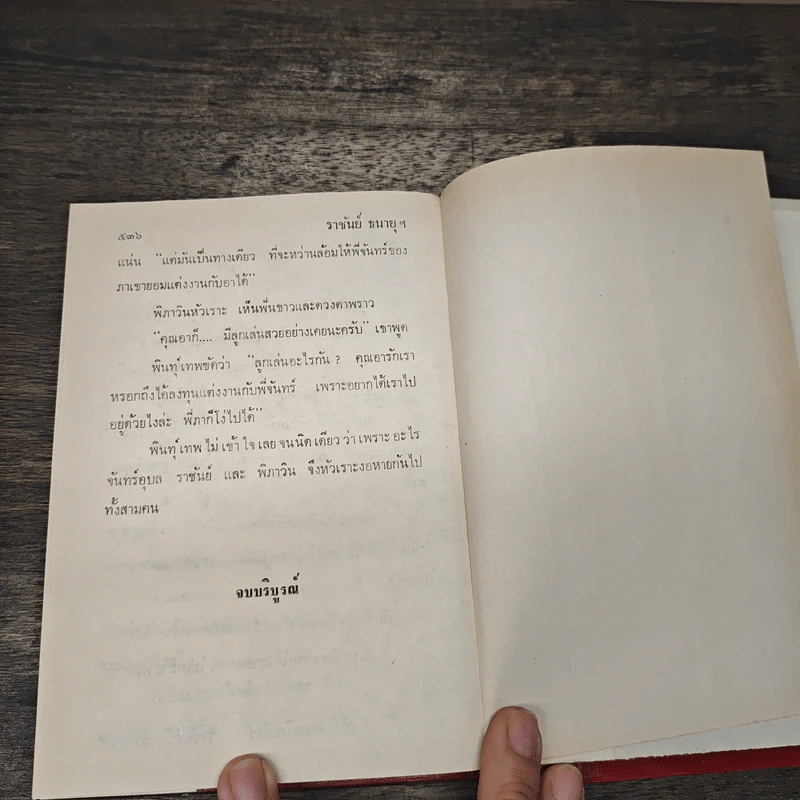 ๕๓๖ ราชันย์ ธนายุ ฯ
แน่น “แต่มันเป็นทางเดียว ที่จะหว่านล้อมให้พี่จันทร์ของ
ภาเขายอมแต่งงานกับอาได้”
พิภาวินหัวเราะ เห็นฟันขาวและดวงตาพราว
“คุณอาก็.... มีลูกเล่นสวยอย่างเคยนะครับ” เขาพูด
พินทุ์เทพขัดว่า “ลูกเล่นอะไรกัน ? คุณอารักเรา
หรอกถึงได้ลงทุนแต่งงานกับพี่จันทร์ เพราะอยากได้เราไป
อยู่ด้วยไงล่ะ พี่ภาก็โง่ไปได้”
พินทุ์เทพไม่เข้าใจเลยจนนิดเดียวว่าเพราะอะไร
จันทร์อุบล ราชันย์ และ พิภาวิน จึงหัวเราะงอหายกันไป
ทั้งสามคน
จบบริบูรณ์